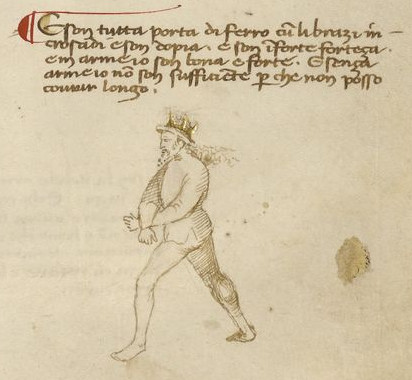 E son tutta porta di ferro cū li brazi in-
crosadi e son dopia. e son ī forte forteça.
e in arme io son bona e forte. E sença
arme io nō son sufficiēte ꝑ che non posso
courir longo.